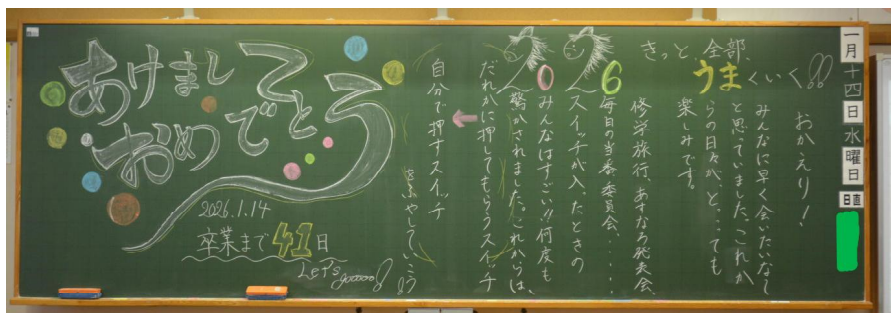 一月十四日水曜日
日直
おかえり！
みんなに早く会いたいなて
と思っていました。これか
らの日々が、とっても
楽しみです。
きっと、全部、
うまくいく!!
修学旅行、あすなろ発表会、
毎日の当番、委員会、・・・・
スイッチが入ったときの
みんなはすごい!!何度も
驚かされました。これからは、
だれかに押してもらうスイッチ
自分で押すスイッチ
2026
あけまして
おめでとう
2026.1.14
卒業まで41日
Let's gooooo!!